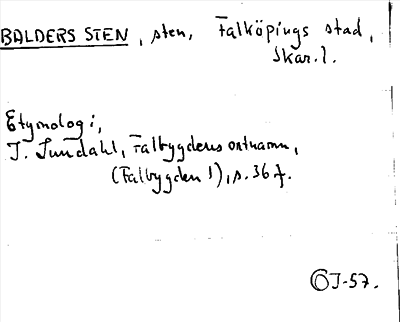 BALDERS STEN, sten, Falköpings stad,
Skar. l.
Etymologi,
I. Lundahl, Falbygdens ortnamn,
(Falbygden 1), s. 36 f.
ÖJ-57.